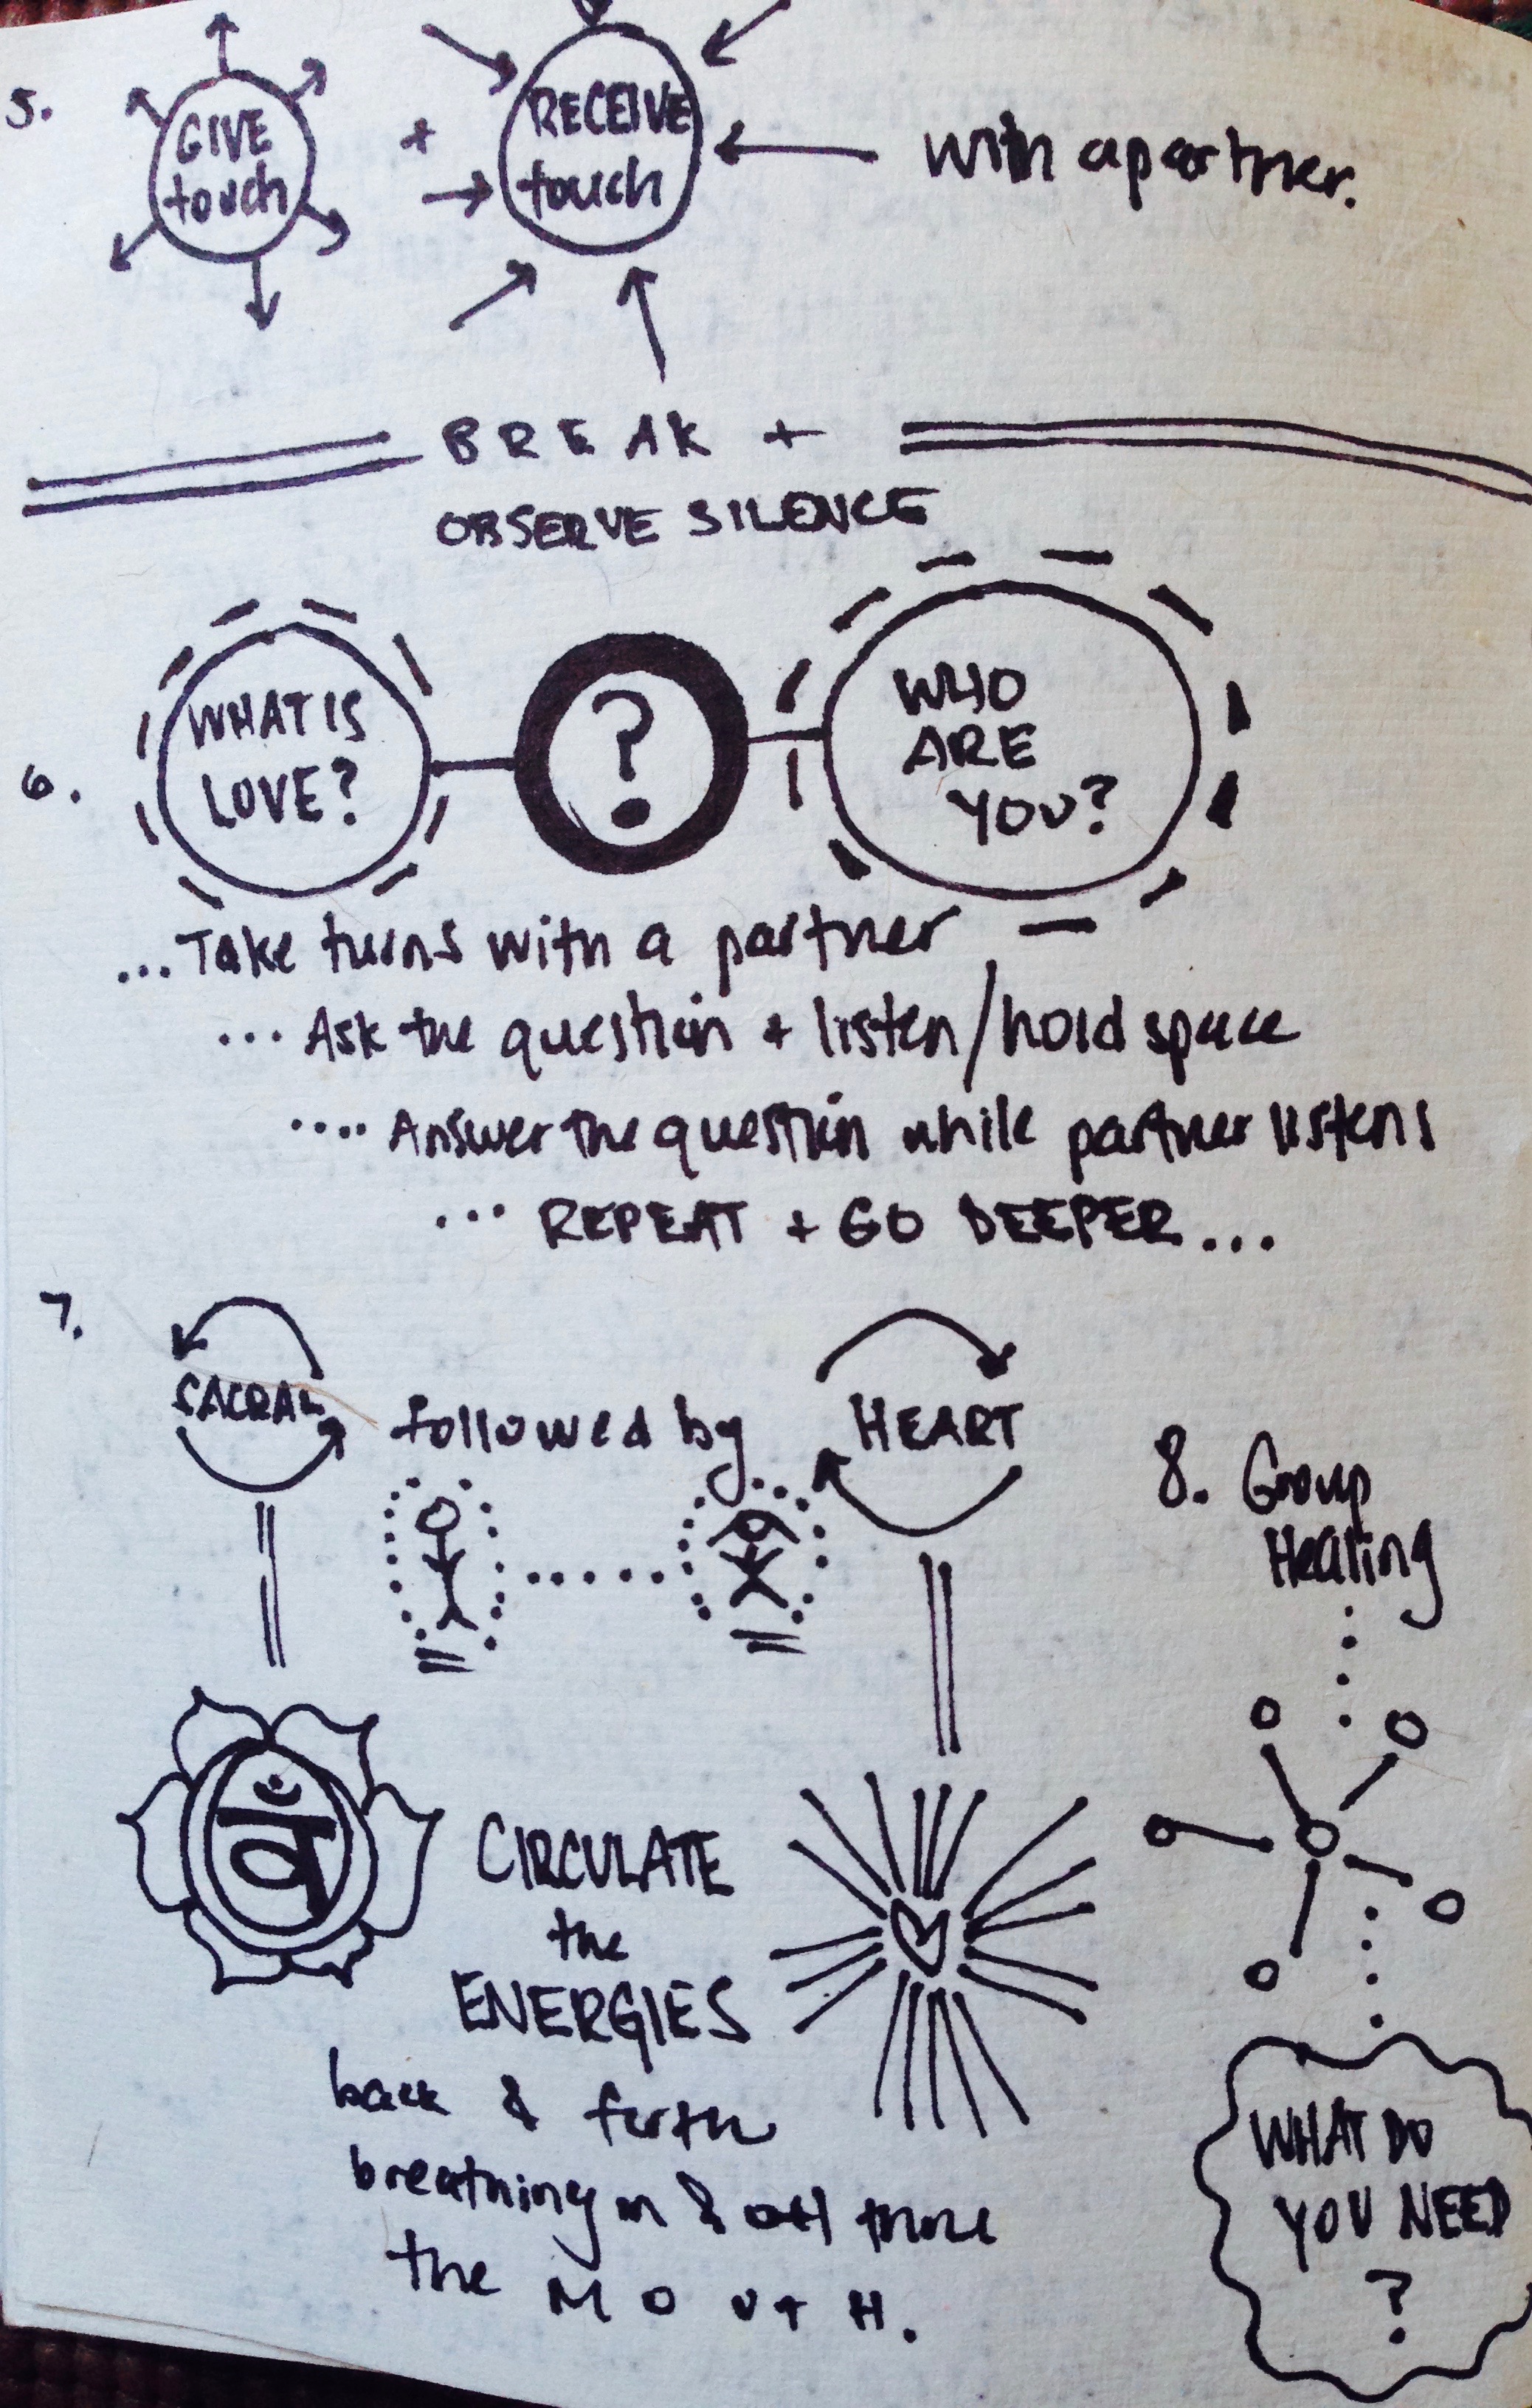 5.
GIVE
touch
+
RECEIVE
touch
with a partner.
BREAK +
OBSERVE SILENCE
6.
WHAT IS
LOVE?
?
WHO
ARE
YOU?
...Take turns with a partner
... Ask the question + listen/hold space
.... Answer the question while partner listens
... REPEAT + GO DEEPER...
7.
SACRAL
followed by
HEART
वँ
CIRCULATE
the
ENERGIES
back & forth
breathing in & out
the MOUTH.
8. Group
Healing
WHAT DO
YOU NEED
?